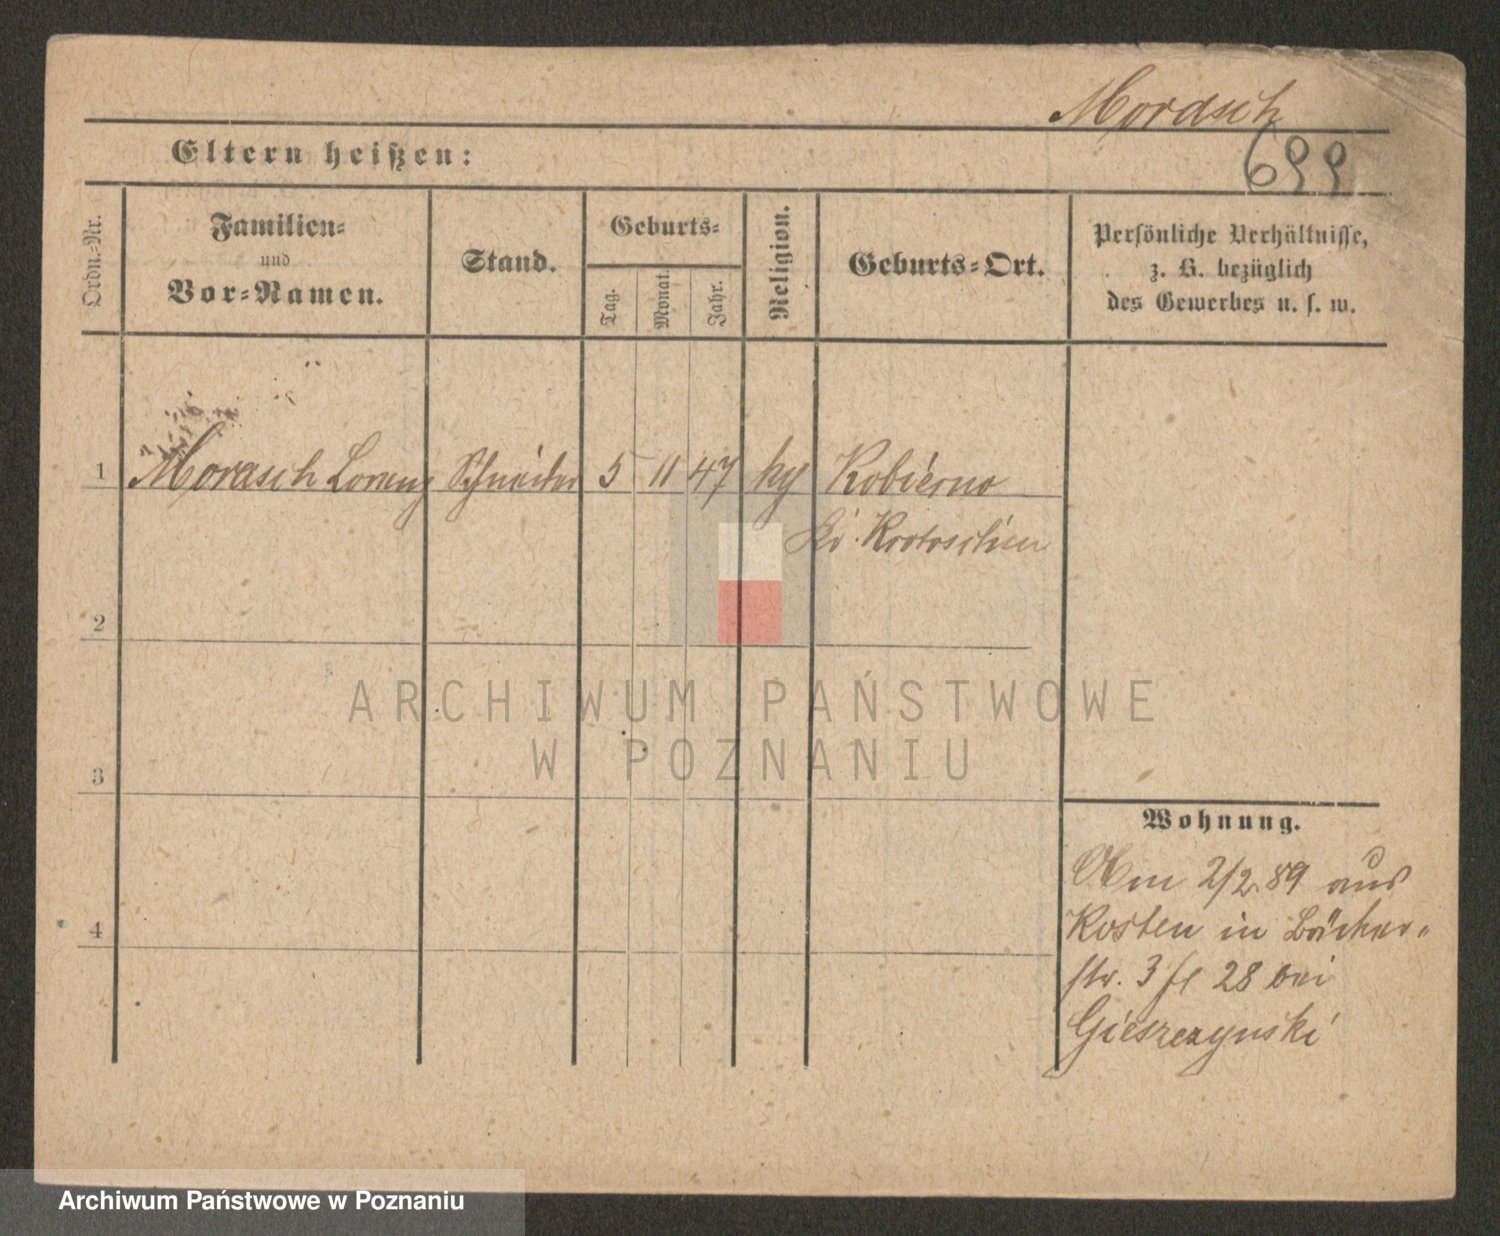 Mordsch
699
Eltern heißen:
Ordn.-Nr.
Familien-
und
Vor-Namen.
Stand.
Geburts-
Tag.
Monat.
Jahr.
Religion.
Geburts-Ort.
Persönliche Verhältnisse,
z. B. bezüglich
des Gewerbes u. s. w.
1 Morasch Lorenz Schneider 5 11 47 Kobierno
Krotoschin
2
ARCHIWUM PAŃSTWOWE
W POZNANIU
3
Wohnung.
Am 2/2 89 aus
Kosten in Bäcker-
str. 3 28 bei
4
Gieszczynski
Archiwum Państwowe w Poznaniu